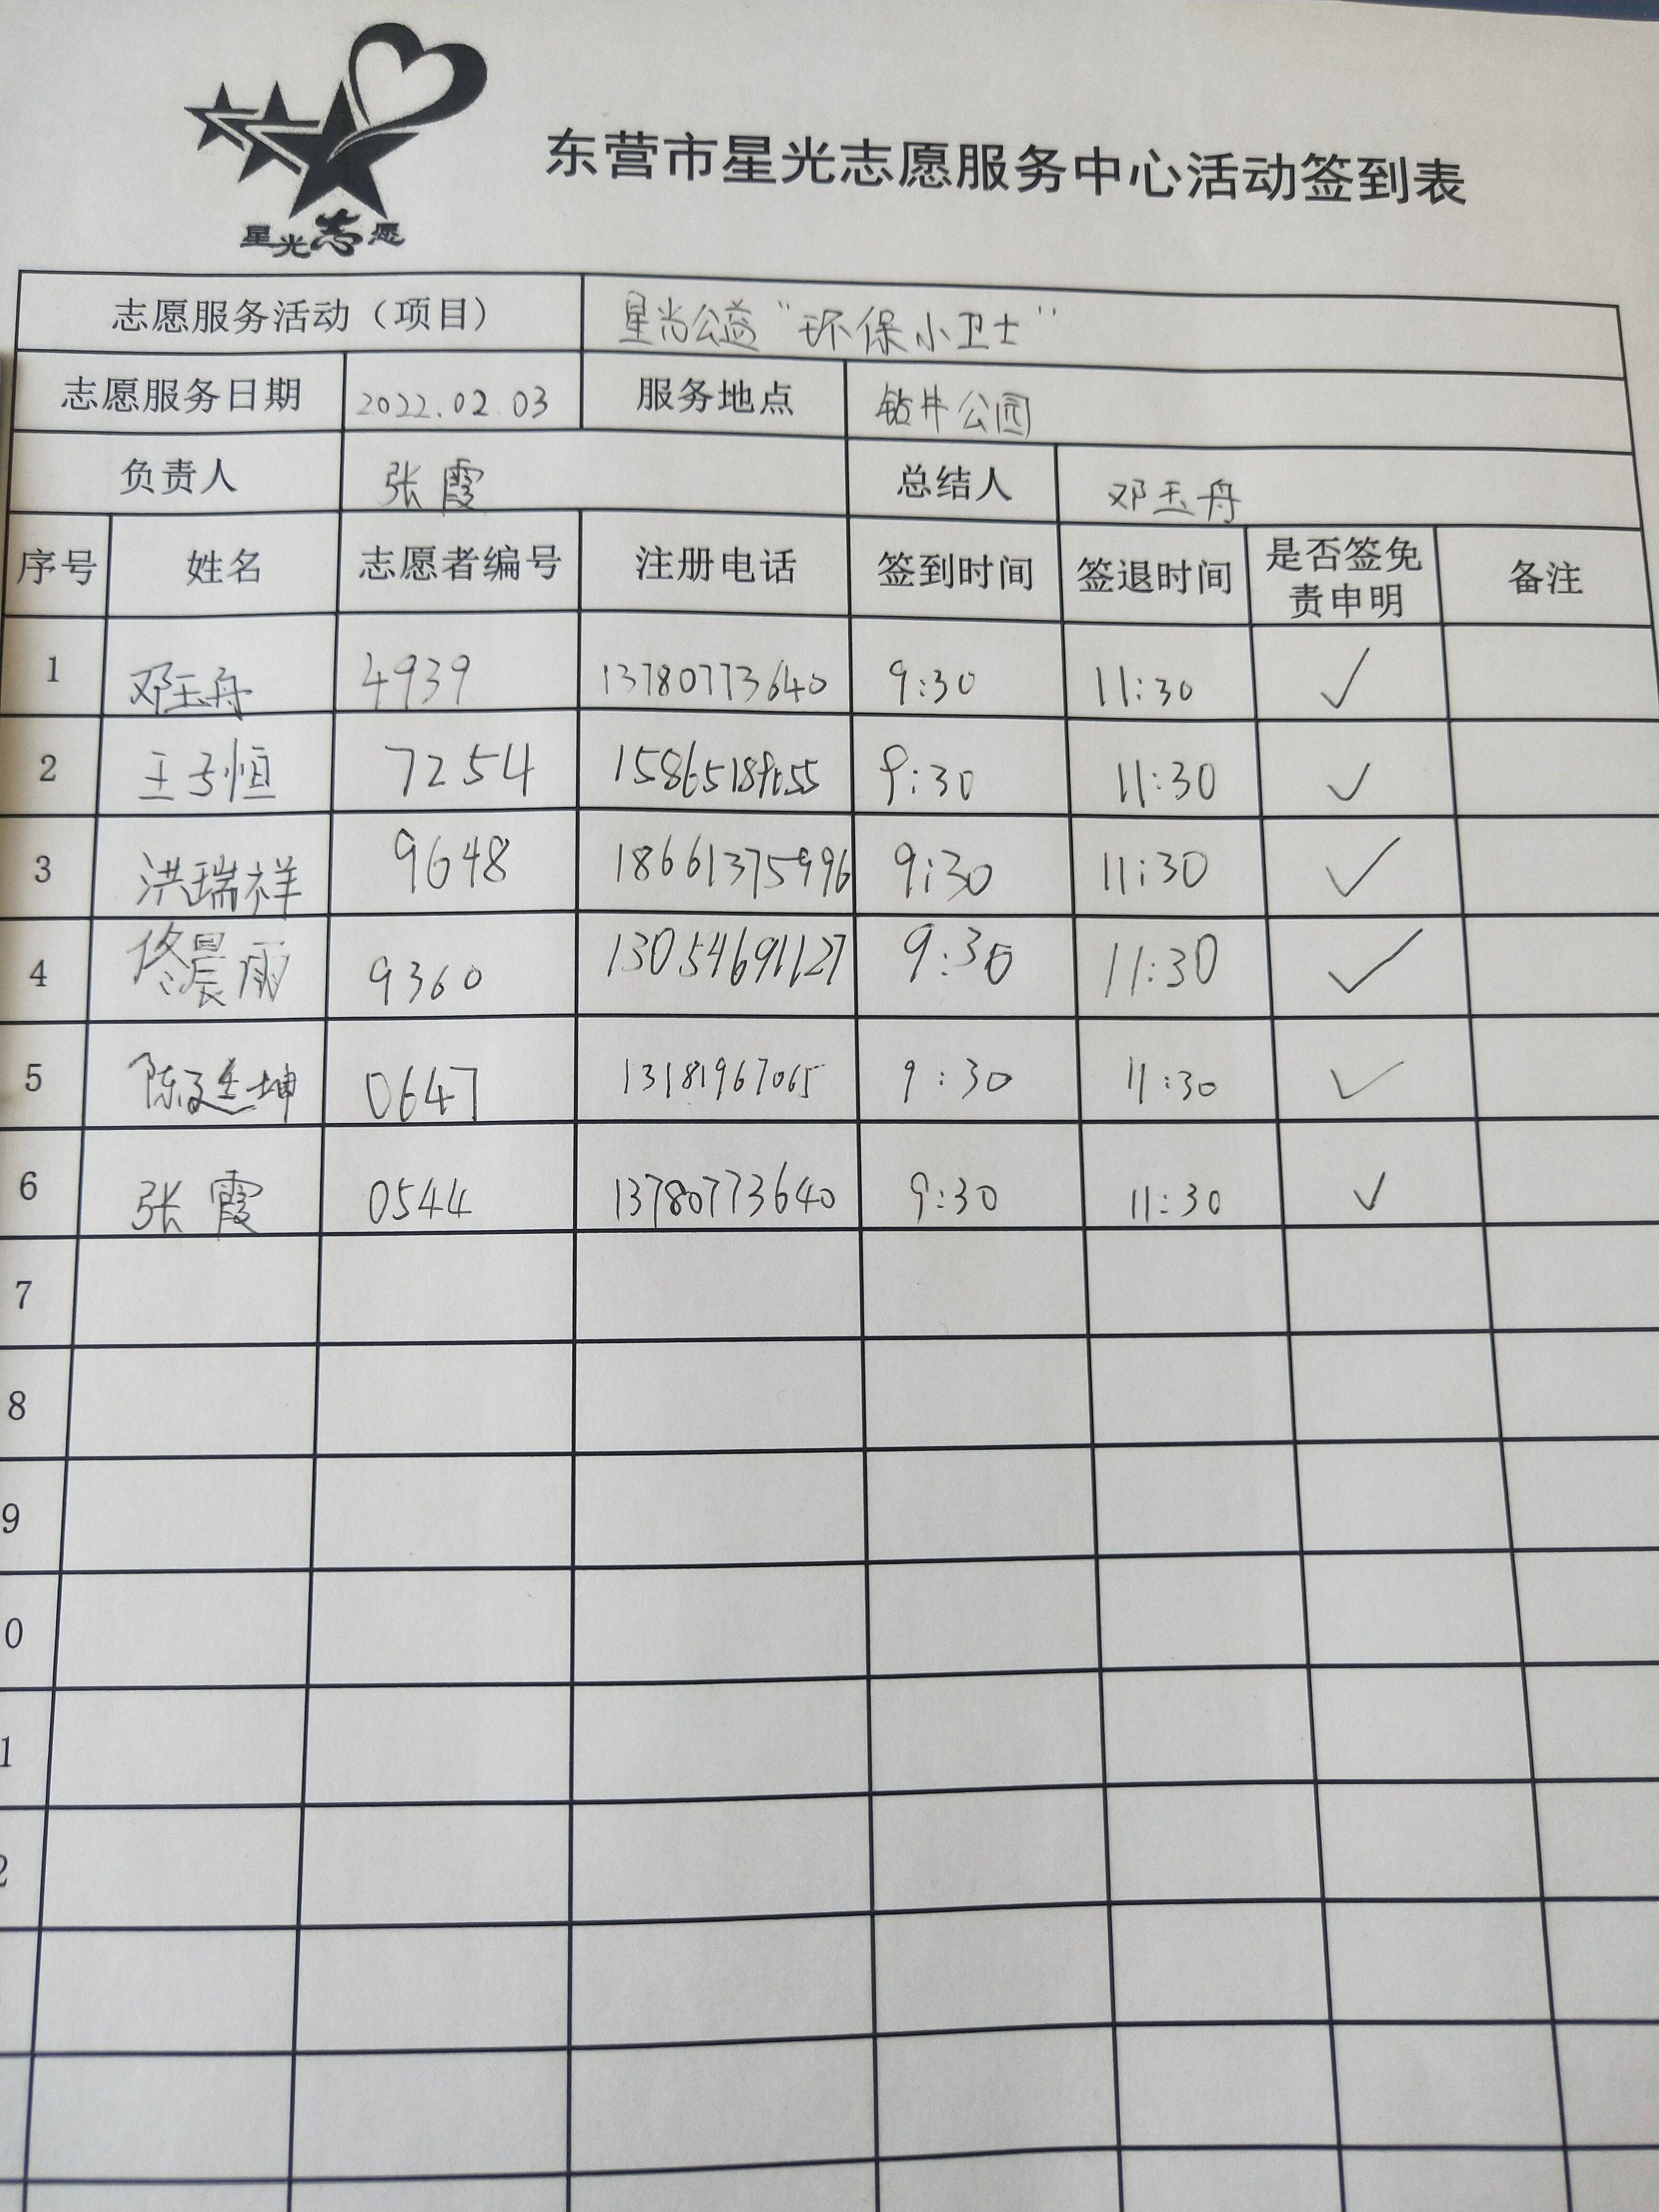 东营市星光志愿服务中心活动签到表
星光志愿
志愿服务活动（项目） 星光公益“环保小卫士”
志愿服务日期 2022.02.03 服务地点 钻井公园
负责人 张霞 总结人 邓玉舟
序号 姓名 志愿者编号 注册电话 签到时间 签退时间 是否签免责申明 备注
1 邓玉舟 4939 13780773640 9:30 11:30 ✓
2 王子恒 7254 9:30 11:30 ✓
3 洪瑞祥 9648 18661375996 9:30 11:30 ✓
4 佟晨雨 9360 13054691127 9:30 11:30 ✓
5 陈廷坤 0647 13181967065 9:30 11:30 ✓
6 张霞 0544 13780773640 9:30 11:30 ✓
7
8
9
0
1
2